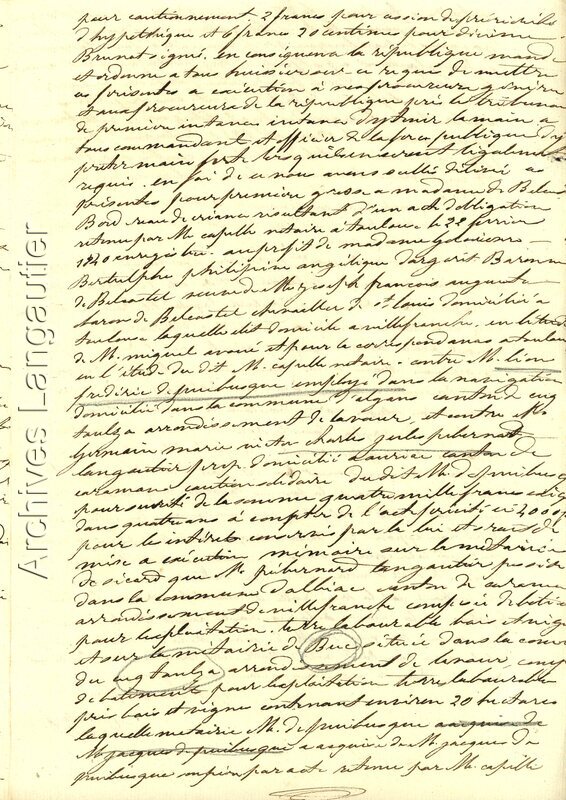 pour cautionnement, 2 francs pour
d'hypothèque et 6 francs 20 centimes pour dixième
Brunet signé. en conséquence la république mande
et ordonne a tous huissier sur ce requis de mettre
ces présentes a exécution à nos procureurs généra
et aux procureurs de la république près le tribunau
de première instance d'y tenir la main a
tous commandant et officier de la force publique d'y
preter main forte lorsqu'ils en seront légalemen
requis. en foi de ce nous avons scellé délivré ces
présentes pour première grosse a madame de Belcas
Bordereau de créance résultant d'un acte d'obligation
retenu par M. capelle notaire a toulouse le 22 février
enregistré. au profit de madame
philipine angélique Baronne
de Belcastel veuve de M. joseph françois auguste
baron de Belcastel chevallier de st louis domicilié a
toulouse laquelle élit domicile a villefranche, en l'étude
de M. miguel avoué et pour la correspondance a toulou
en l'étude du dit M. capelle notaire. contre M. léon
frédéric de puibusque employé dans la navigation
domicilié dans la commune d'algans canton de cuq
toulza arrondissement de lavaur, et contre M.
germain marie victor charles jules pebernad
langautier prop. domicilié a auriac canton de
caraman caution solidaire du dit M. de puibusq
pour sureté de la somme quatre mille francs exig
dans quatre ans à compter de l'act précité ci 4000 f
pour les intérêts conservés par la loi et frais de
mise a exécution mémoire sur la métairie
de sicard que M. pébernard langautier possède
dans la commune d'albiac canton de caraman
arrondissement de villefranche composée de batim
pour l'exploitation. terre labourable bois et vign
et sur la métairie de Buc située dans la com
de cuq toulza arrondissement de lavaur, comp
de batiments pour l'exploitation terre labourable
près bois et vigne contenant environ 20 hectares
laquelle métairie M. de puibusque acquise de
M. jacques de puibusque a acquise de M. jacques de
puibusque par acte retenu par M. capelle
Archives Langautier